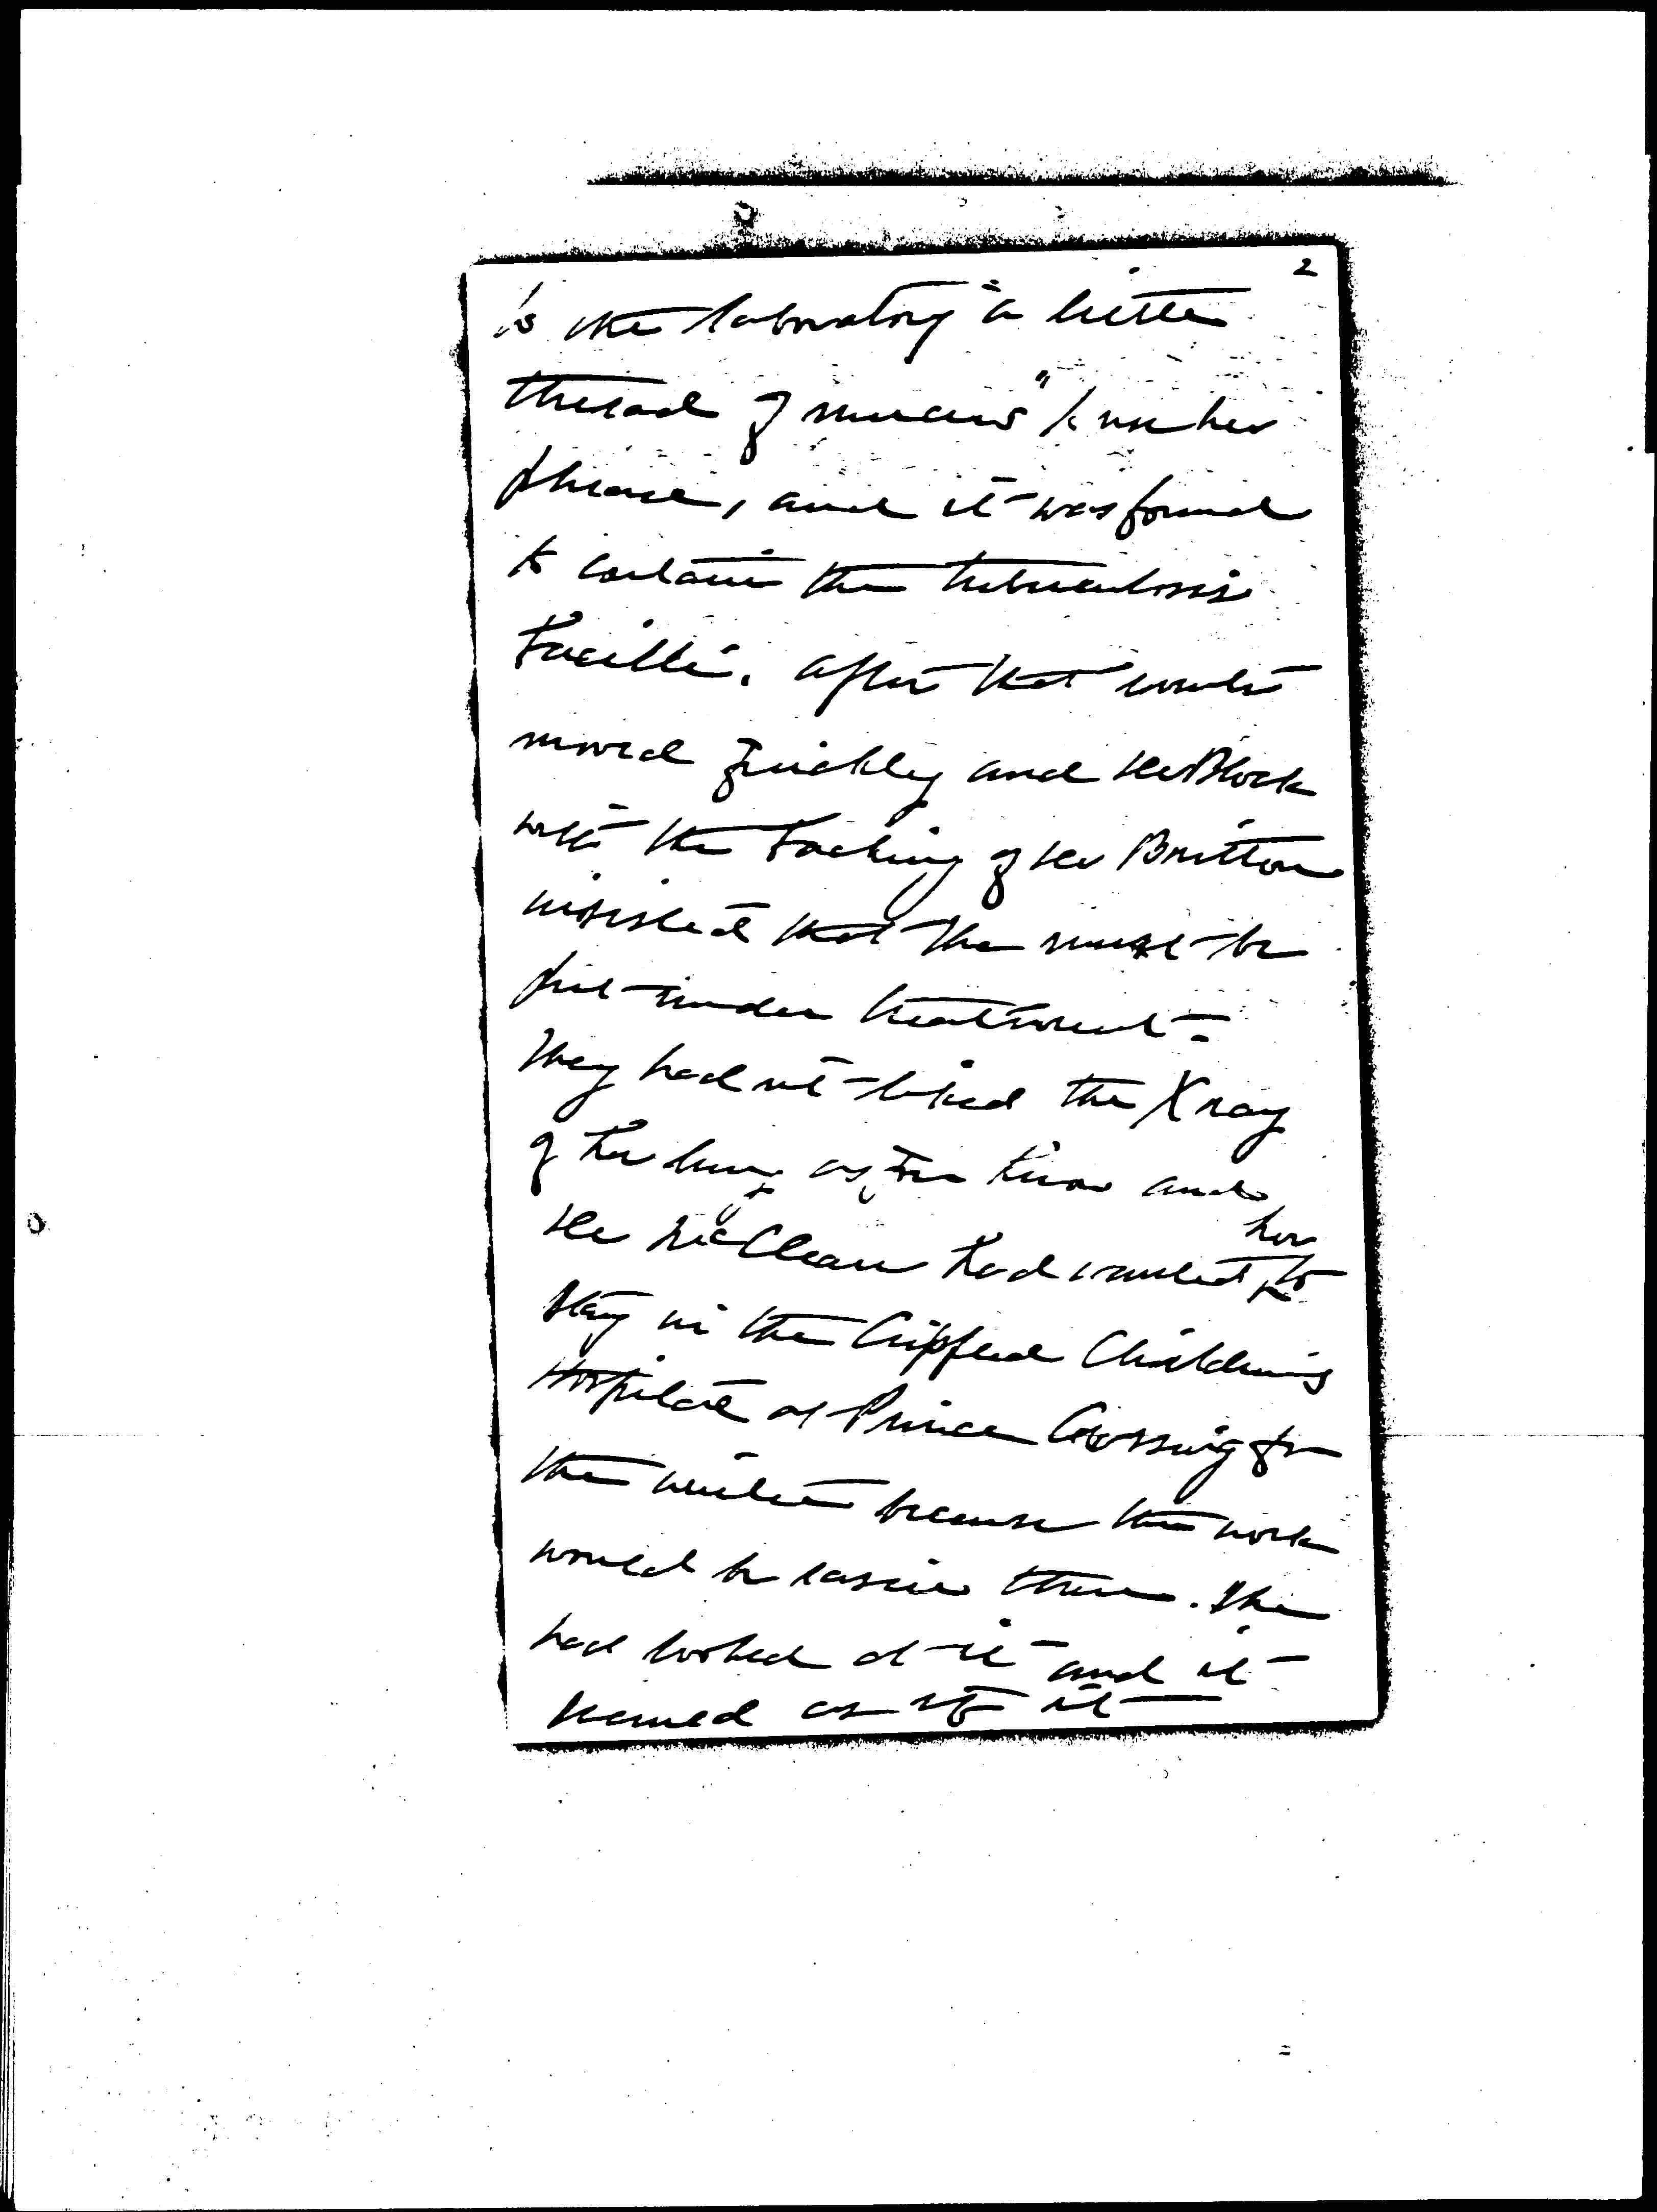 2
to the laboratory "a little
thread of mucus" to use her
phrase, and it was found
to contain the tuberculosis
bacilli. After that events
moved quickly and Dr Block
with the backing of Dr Britton
insisted that she must be
put under treatment.
They had not liked the X ray
of her lung as for time and
Dr McClean had wanted her to
stay in the Crippled Children's
Hospital at Prince Crossing for
the winter because the work
would be easier there. She
had looked at it and it
seemed as if it